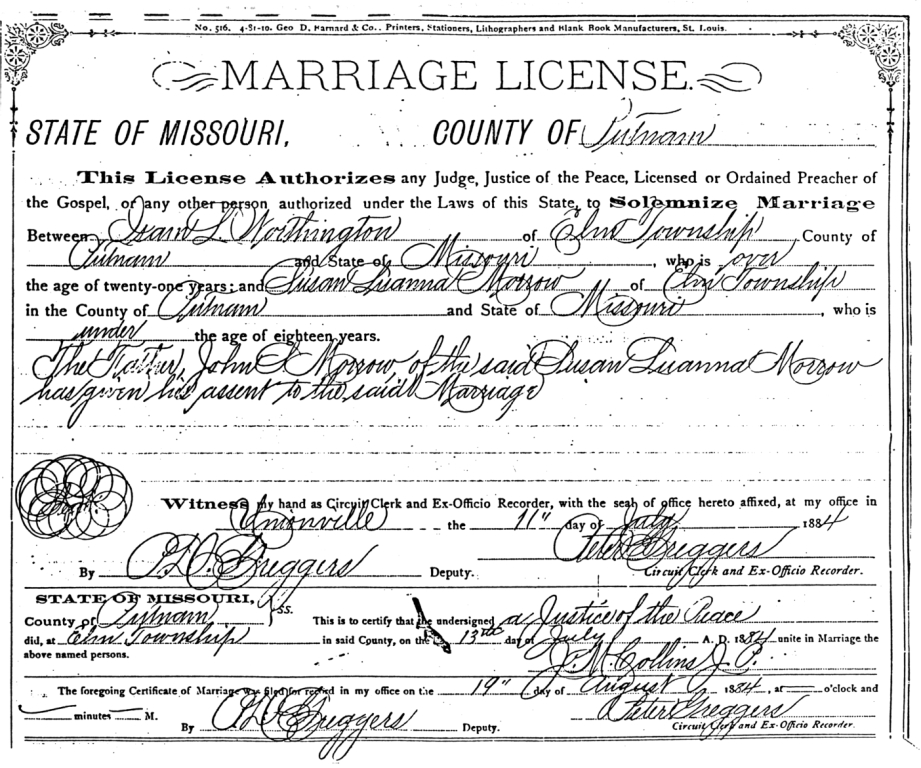 No. 516. 4-81-10. Geo D. Barnard & Co., Printers, Stationers, Lithographers and Blank Book Manufacturers, St. Louis.
MARRIAGE LICENSE.
STATE OF MISSOURI, COUNTY OF Putnam
This License Authorizes any Judge, Justice of the Peace, Licensed or Ordained Preacher of
the Gospel, or any other person authorized under the Laws of this State, to Solemnize Marriage
Between Isam L. Worthington of Elm Township, County of
Putnam and State of Missouri, who is over
the age of twenty-one years; and Susan Luanna Morrow of Elm Township
in the County of Putnam and State of Missouri, who is
under the age of eighteen years.
The Father, John S Morrow, of the said Susan Luanna Morrow
has given his assent to the said Marriage
Witness my hand as Circuit Clerk and Ex-Officio Recorder, with the seal of office hereto affixed, at my office in
Unionville the 11" day of July 1884
Peter Greggers
By P.D. Greggers Deputy. Circuit Clerk and Ex-Officio Recorder.
STATE OF MISSOURI,
County of Putnam } ss. This is to certify that the undersigned a Justice of the Peace
did, at Elm Township in said County, on the 13th day of July A. D. 1884 unite in Marriage the
above named persons. J. M. Collins J. P.
The foregoing Certificate of Marriage was filed for record in my office on the 19" day of August 1884, at — o'clock and
— minutes — M. Peter Greggers
By P.D. Greggers Deputy. Circuit Clerk and Ex-Officio Recorder.